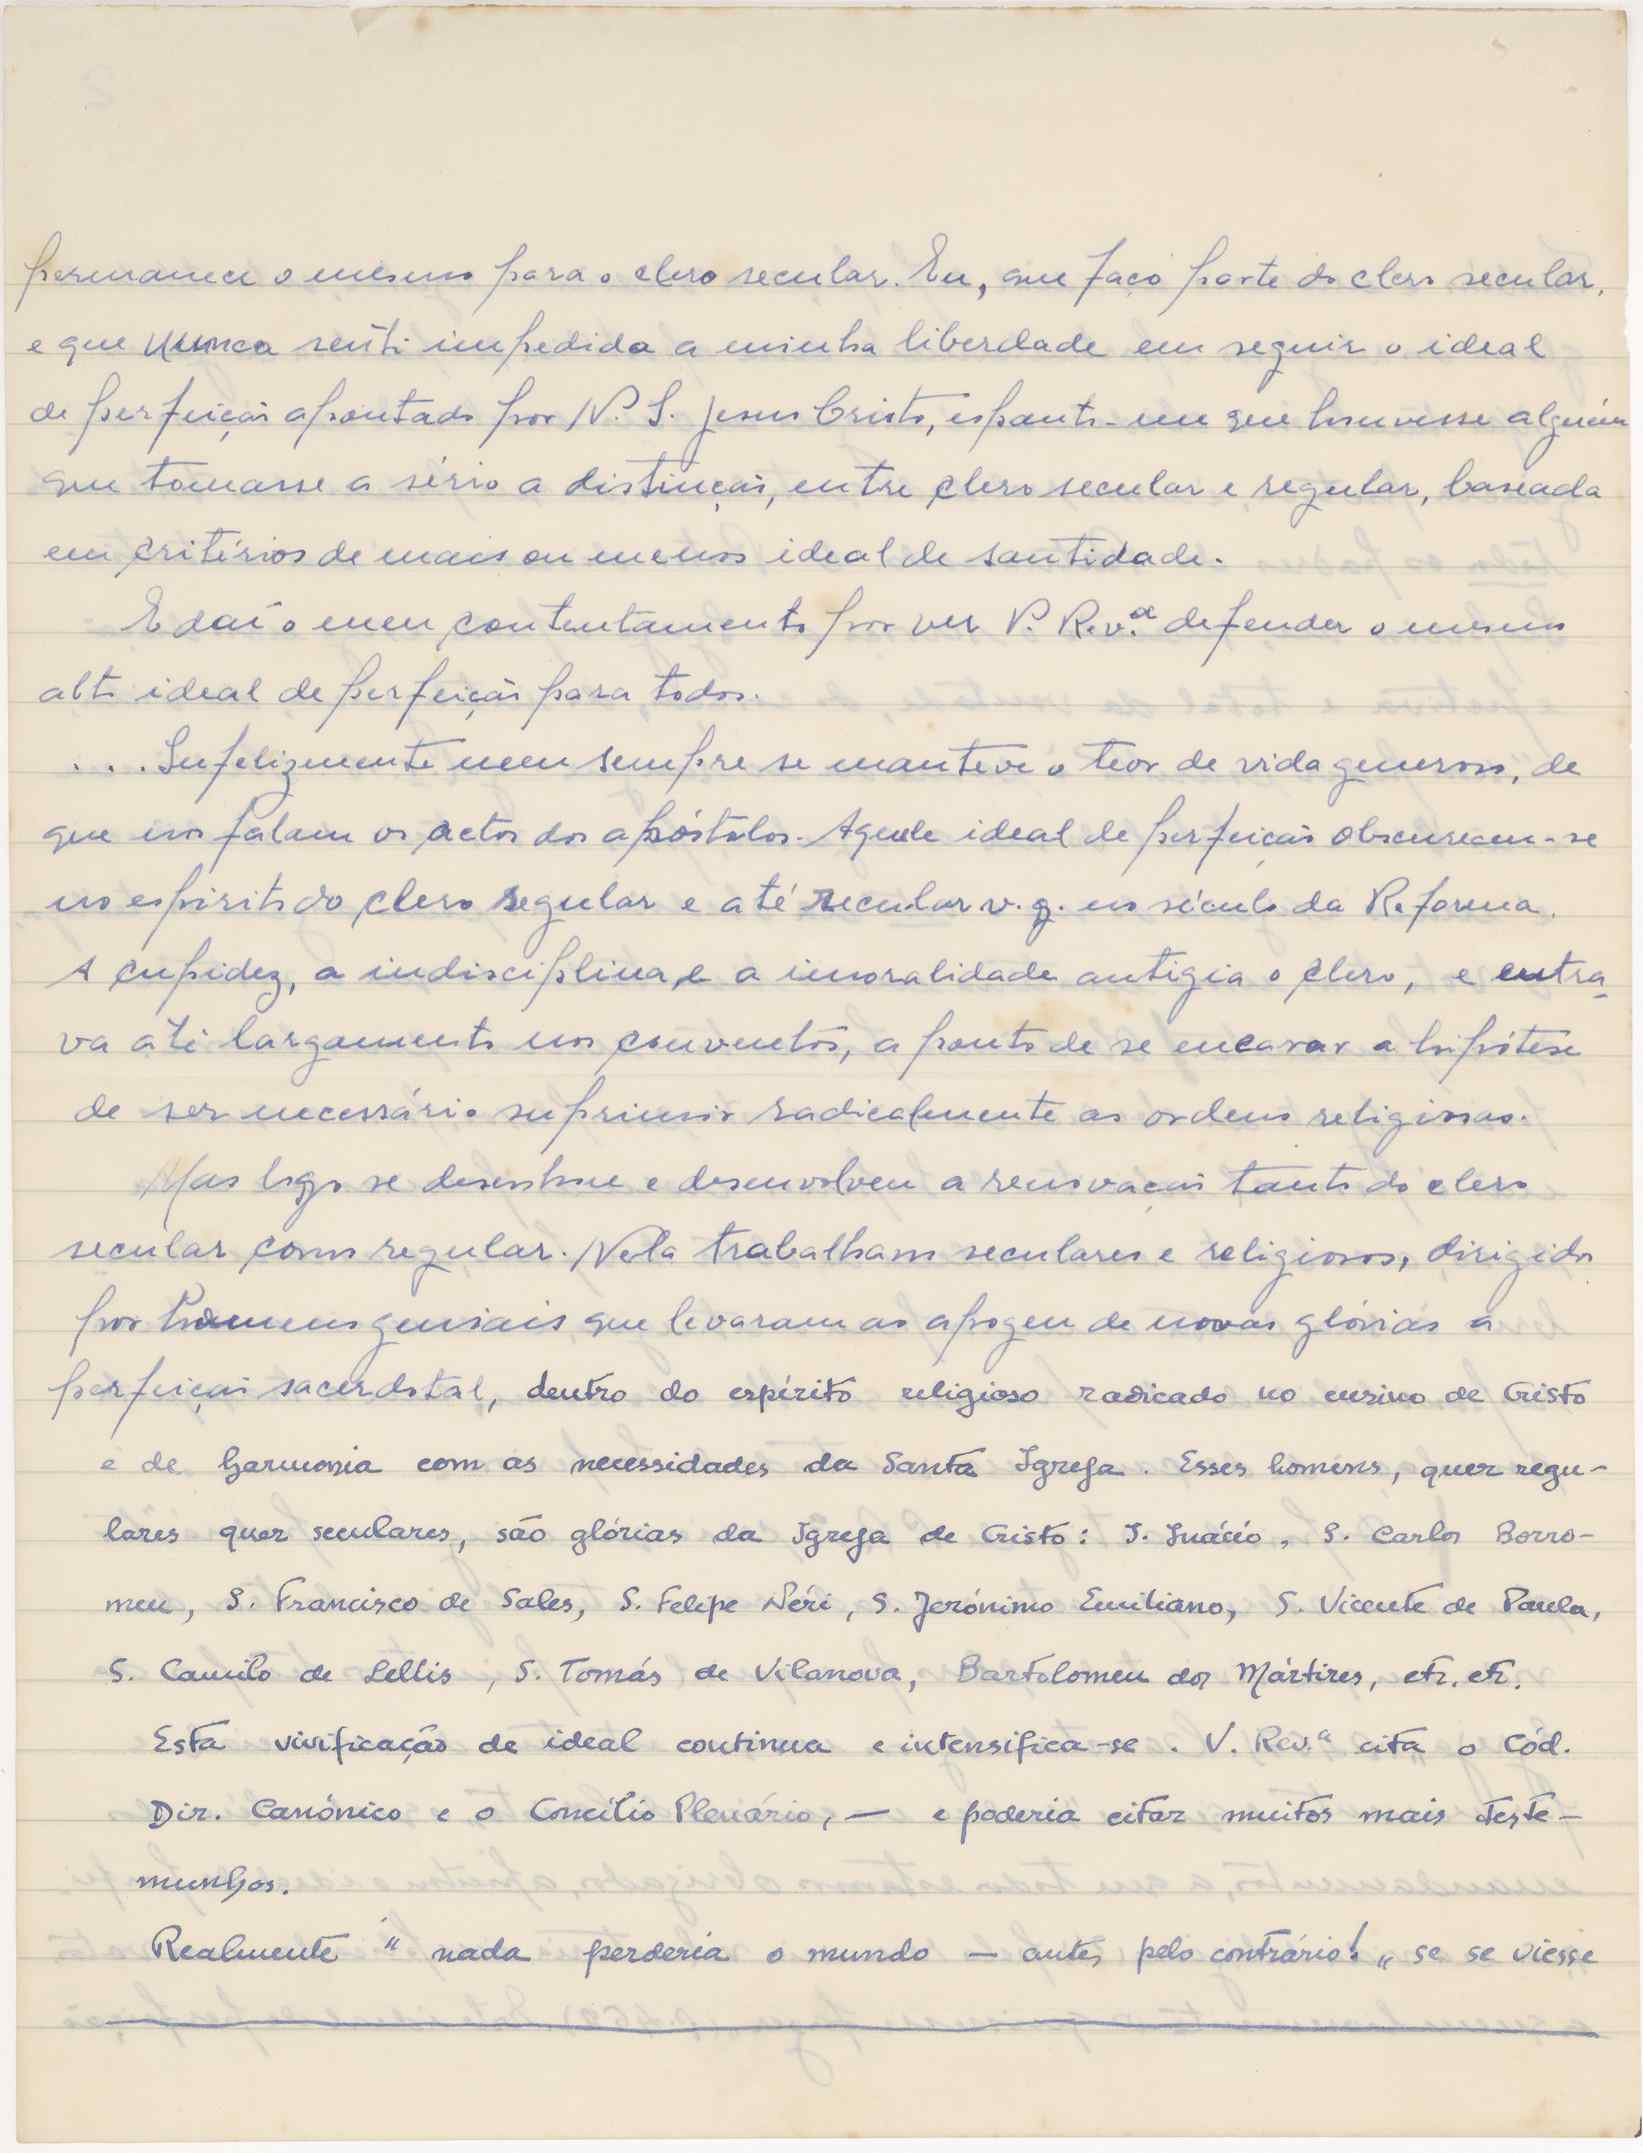 permanece o mesmo para o clero secular. Eu, que faço parte do clero secular,
e que nunca senti impedida a minha liberdade em seguir o ideal
de perfeição apontado por N. S. Jesus Cristo, espanto-me que houvesse alguém
que tomasse a sério a distinção, entre clero secular e regular, baseada
em critérios de mais ou menos ideal de santidade.
E daí o meu contentamento por ver V. Rev.ª defender o mesmo
alto ideal de perfeição para todos.
... Infelizmente nem sempre se manteve o teor de vida generoso, de
que nos falam os actos dos apóstolos. Aquele ideal de perfeição obscureceu-se
no espírito do clero regular e até secular v. g. no século da Reforma.
A cupidez, a indisciplina, e a imoralidade antigia o clero, e entra-
va até largamente nos conventos, a ponto de se encarar a hipótese
de ser necessário suprimir radicalmente as ordens religiosas.
Mas logo se desenhou e desenvolveu a renovação tanto do clero
secular como regular. Nela trabalham seculares e religiosos, dirigidos
por homens geniais que levaram ao apogeu de novas glórias a
perfeição sacerdotal, dentro do espírito religioso radicado no ensino de Cristo
e de harmonia com as necessidades da Santa Igreja. Esses homens, quer regu-
lares quer seculares, são glórias da Igreja de Cristo: S. Inácio, S. Carlos Borro-
meu, S. Francisco de Sales, S. Felipe Néri, S. Jerónimo Emiliano, S. Vicente de Paula,
S. Camilo de Lellis, S. Tomás de Vilanova, Bartolomeu dos Mártires, etc. etc.
Esta vivificação de ideal continua e intensifica-se. V. Rev.ª cita o Cód.
Dir. Canónico e o Concílio Plenário, — e poderia citar muitos mais teste-
munhos.
Realmente " nada perderia o mundo — antes pelo contrário! „ se se viesse